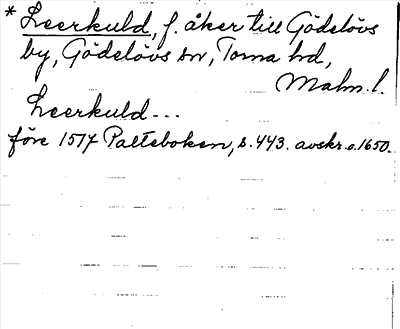 * Leerkuld, f. åker till Gödelövs
by, Gödelövs sn, Torna hd,
Malm. l.
Leerkuld - - -
före 1517 Palteboken, s. 443. avskr. o. 1650.